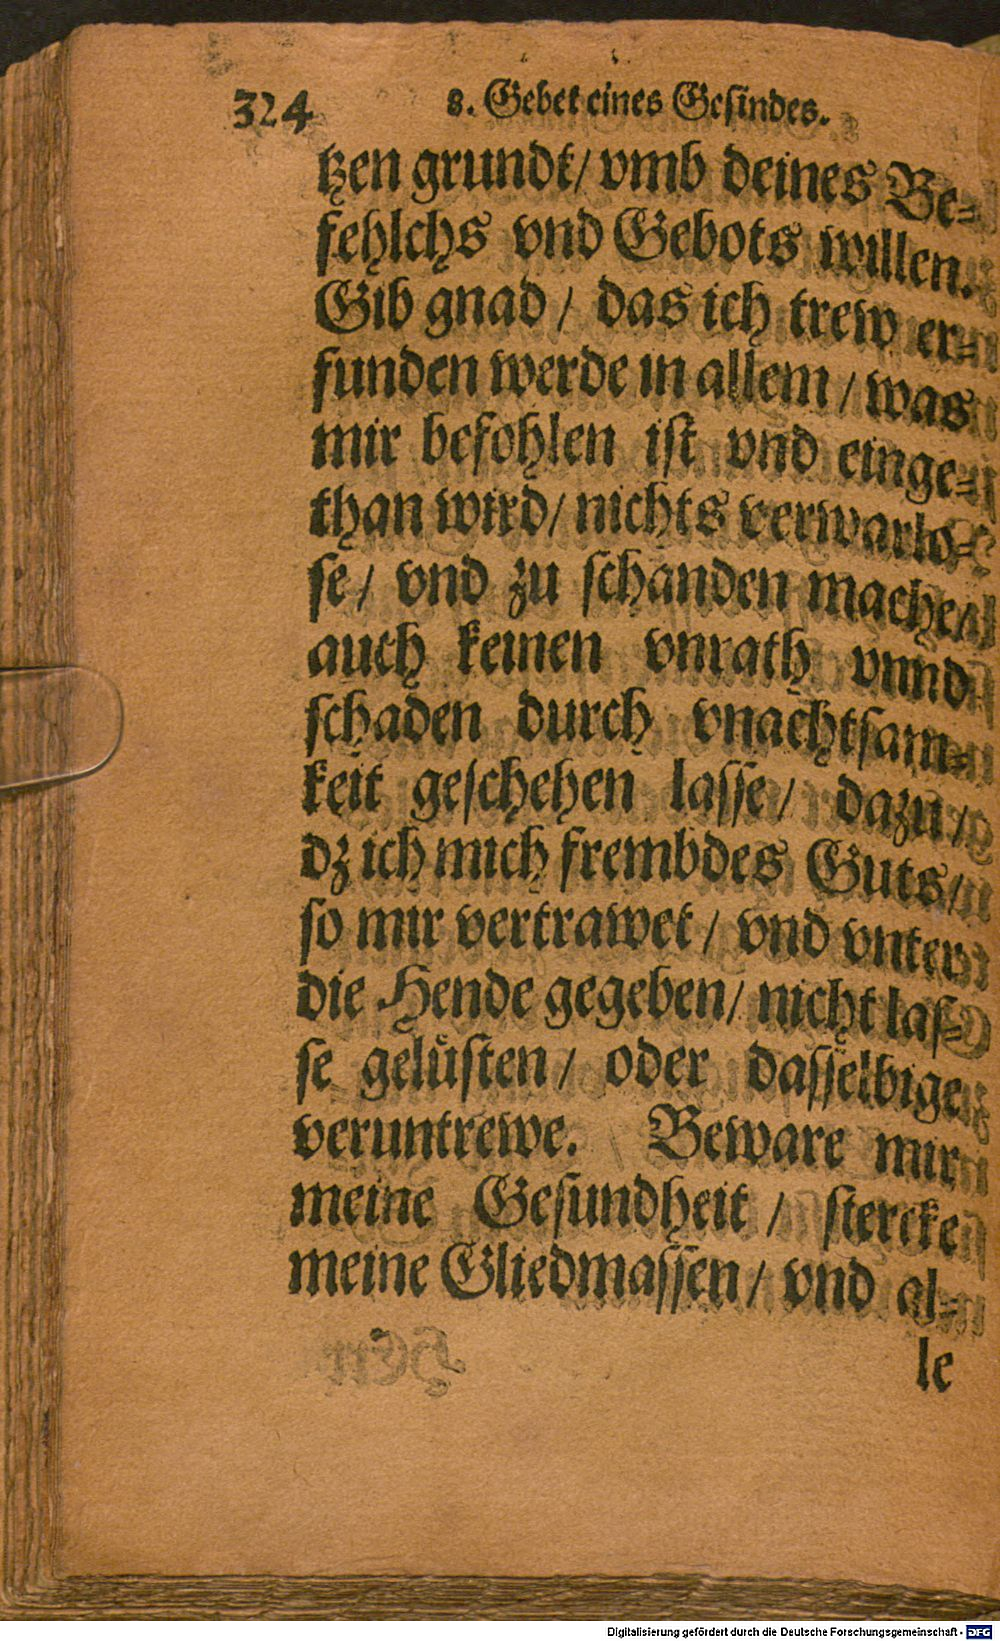 324 8. Gebet eines Gesindes.
tzen grundt/ vmb deines Be-
fehlchs vnd Gebots willen.
Gib gnad / das ich trew er-
funden werde in allem / was
mir befohlen ist vnd einge-
than wird/ nichts verwarlo-
se/ vnd zu schanden mache/
auch keinen vnrath vnnd
schaden durch vnachtsam-
keit geschehen lasse/ dazu/
dz ich mich frembdes Guts/
so mir vertrawet / vnd vnter
die Hende gegeben/ nicht las-
se gelüsten/ oder dasselbige
veruntrewe. Beware mir
meine Gesundheit / stercke
meine Gliedmassen/ vnd al-
le
Digitalisierung gefördert durch die Deutsche Forschungsgemeinschaft - DFG